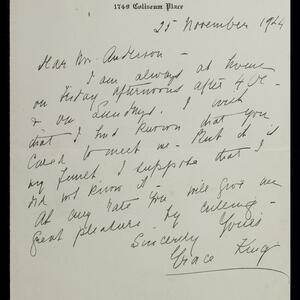 1749 Coliseum Place
25 November 1924
Dear Mr. Anderson -
I am always at home
on Friday afternoons after 4 Oc -
& on Sundays. I wish
that I had known that you
cared to meet me - But it is
my fault I suppose that I
did not know it -
At any rate you will give me
great pleasure by calling -
Sincerely Yours
Grace King